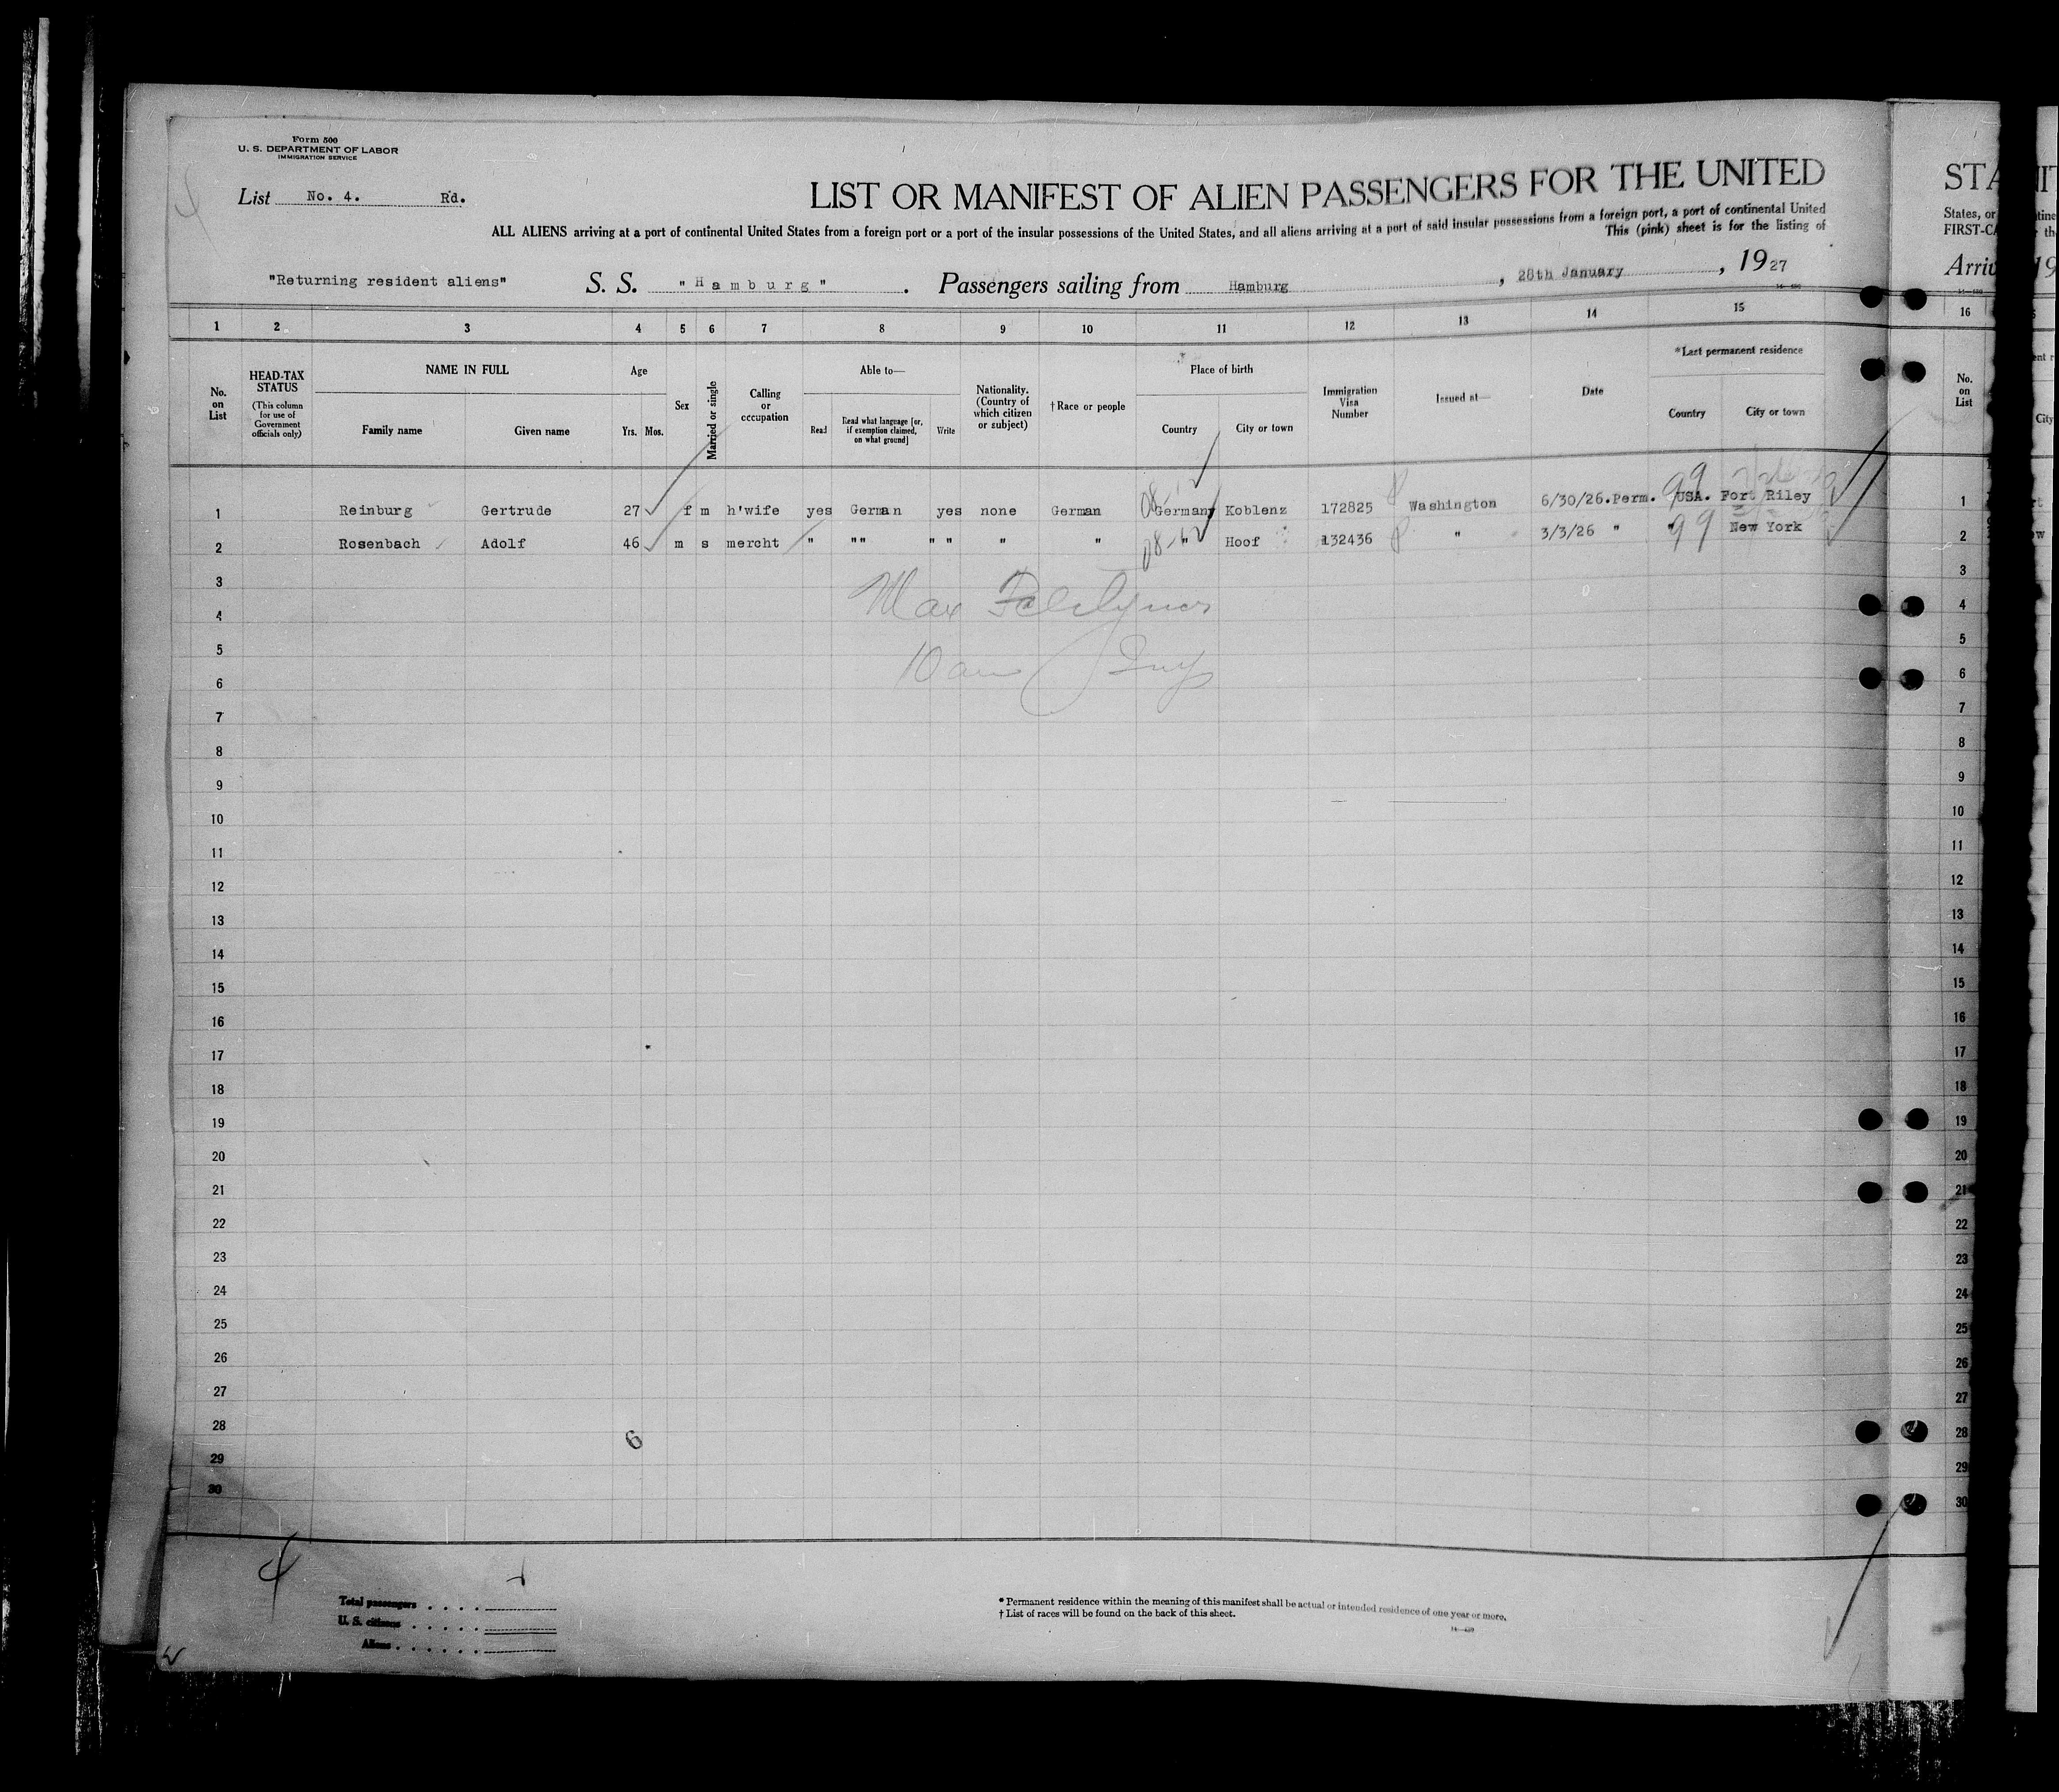 Form 500
U. S. DEPARTMENT OF LABOR
IMMIGRATION SERVICE
List No. 4. Rd.
LIST OR MANIFEST OF ALIEN PASSENGERS FOR THE UNITED
ALL ALIENS arriving at a port of continental United States from a foreign port or a port of the insular possessions of the United States, and all aliens arriving at a port of said insular possessions from a foreign port, a port of continental United
This (pink) sheet is for the listing of
"Returning resident aliens" S. S. "Hamburg". Passengers sailing from Hamburg, 28th January, 1927
1 2 3 4 5 6 7 8 9 10 11 12 13 14 15
No. on List
HEAD-TAX STATUS
(This column for use of Government officials only)
NAME IN FULL
Family name Given name
Age
Yrs. Mos.
Sex
Married or single
Calling or occupation
Able to—
Read Read what language [or, if exemption claimed, on what ground] Write
Nationality. (Country of which citizen or subject)
† Race or people
Place of birth
Country City or town
Immigration Visa Number
Issued at—
Date
*Last permanent residence
Country City or town
1 Reinburg Gertrude 27 f m h'wife yes German yes none German Germany Koblenz 172825 Washington 6/30/26.Perm. USA. Fort Riley
2 Rosenbach Adolf 46 m s mercht " "" " " " " " Hoof 132436 " 3/3/26 " " New York
3
4
Max
5
10 am
6
7
8
9
10
11
12
13
14
15
16
17
18
19
20
21
22
23
24
25
26
27
28
6
29
30
Total passengers
U. S. citizens
Aliens
* Permanent residence within the meaning of this manifest shall be actual or intended residence of one year or more.
† List of races will be found on the back of this sheet.
STA
States, or
FIRST-CA
Arriv
16
No. on List
1
2
3
4
5
6
7
8
9
10
11
12
13
14
15
16
17
18
19
20
21
22
23
24
25
26
27
28
29
30